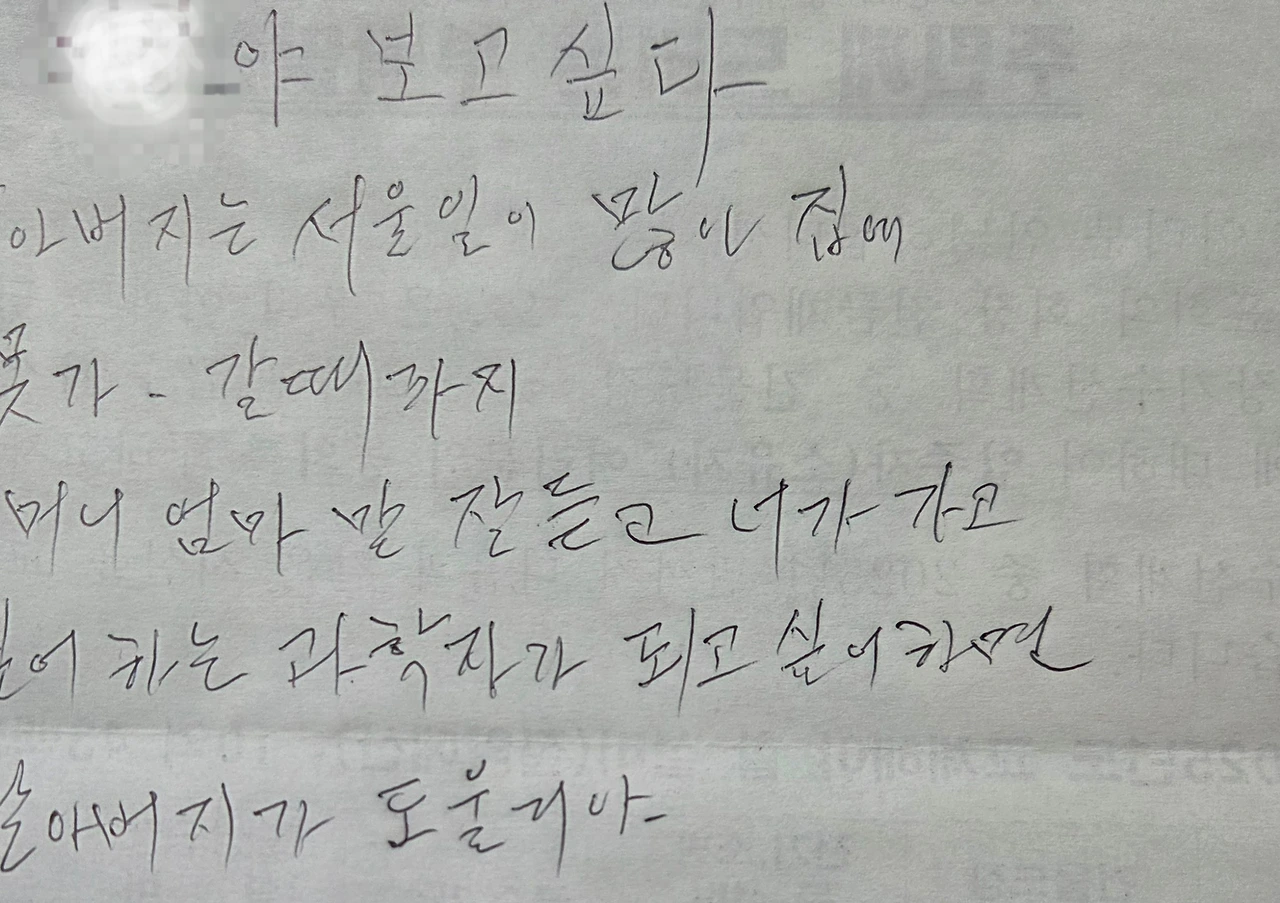 야 보고싶다
아버지는 서울일이 많아 집에
못가 - 갈때까지
머니 엄마 말 잘듣고 너가 가고
싶어 하는 과학자가 되고 싶어하면
할아버지가 도울리아-